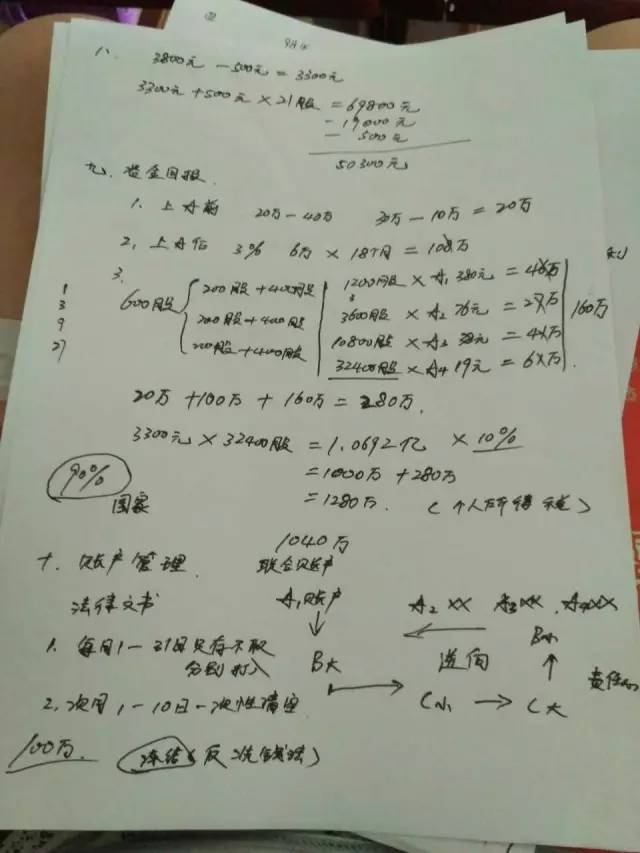 八、
3800元 - 500元 = 3300元
3300元 + 500元 × 21股 = 69800元
- 19000元
- 500元
50300元
九、资金回报
1、上A前 20万-40万 30万-10万=20万
2、上A后 3% 6万 × 18个月 = 108万
3.
1
3
9
27
600股
200股+400股
200股+400股
200股+400股
1200股 × A1 380元 = 46万
3600股 × A2 76元 = 27万
10800股 × A3 38元 = 41万
32400股 × A4 19元 = 61万
160万
20万 + 100万 + 160万 = 280万.
3300元 × 32400股 = 1.0692亿 × 10%
= 1000万 + 280万
= 1280万. (个人所得税)
90%
国家
1040万
十、账户管理 联合账户
法律文书 A1账户 A2 XX A3XX、A4XX
1、每月1-31日只存不取
分别打入
B大 逆向 B小
2、次月1-10日一次性清空
C小 → C大
100万. 冻结(反洗钱法)